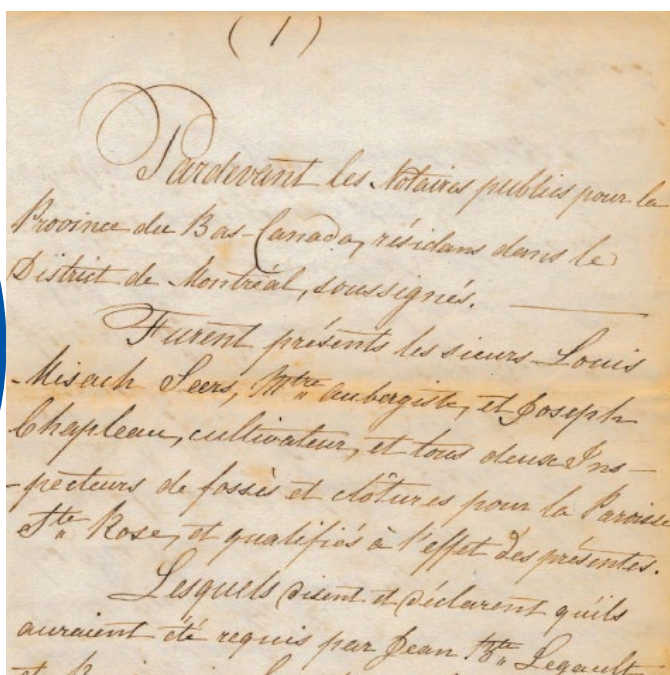 ( 1 )
Pardevant les Notaires publics pour la
Province du Bas-Canada, résidans dans le
District de Montréal, soussignés.
Furent présents les sieurs Louis
Misach Seers, Mtre aubergiste, et Joseph
Chapleau, cultivateur, et tous deux Ins-
-pecteurs de fossés et clôtures pour la Paroisse
Ste Rose, et qualifiés à l'effet des présentes.
Lesquels disent et déclarent qu'ils
auraient été requis par Jean Bte Legault
et